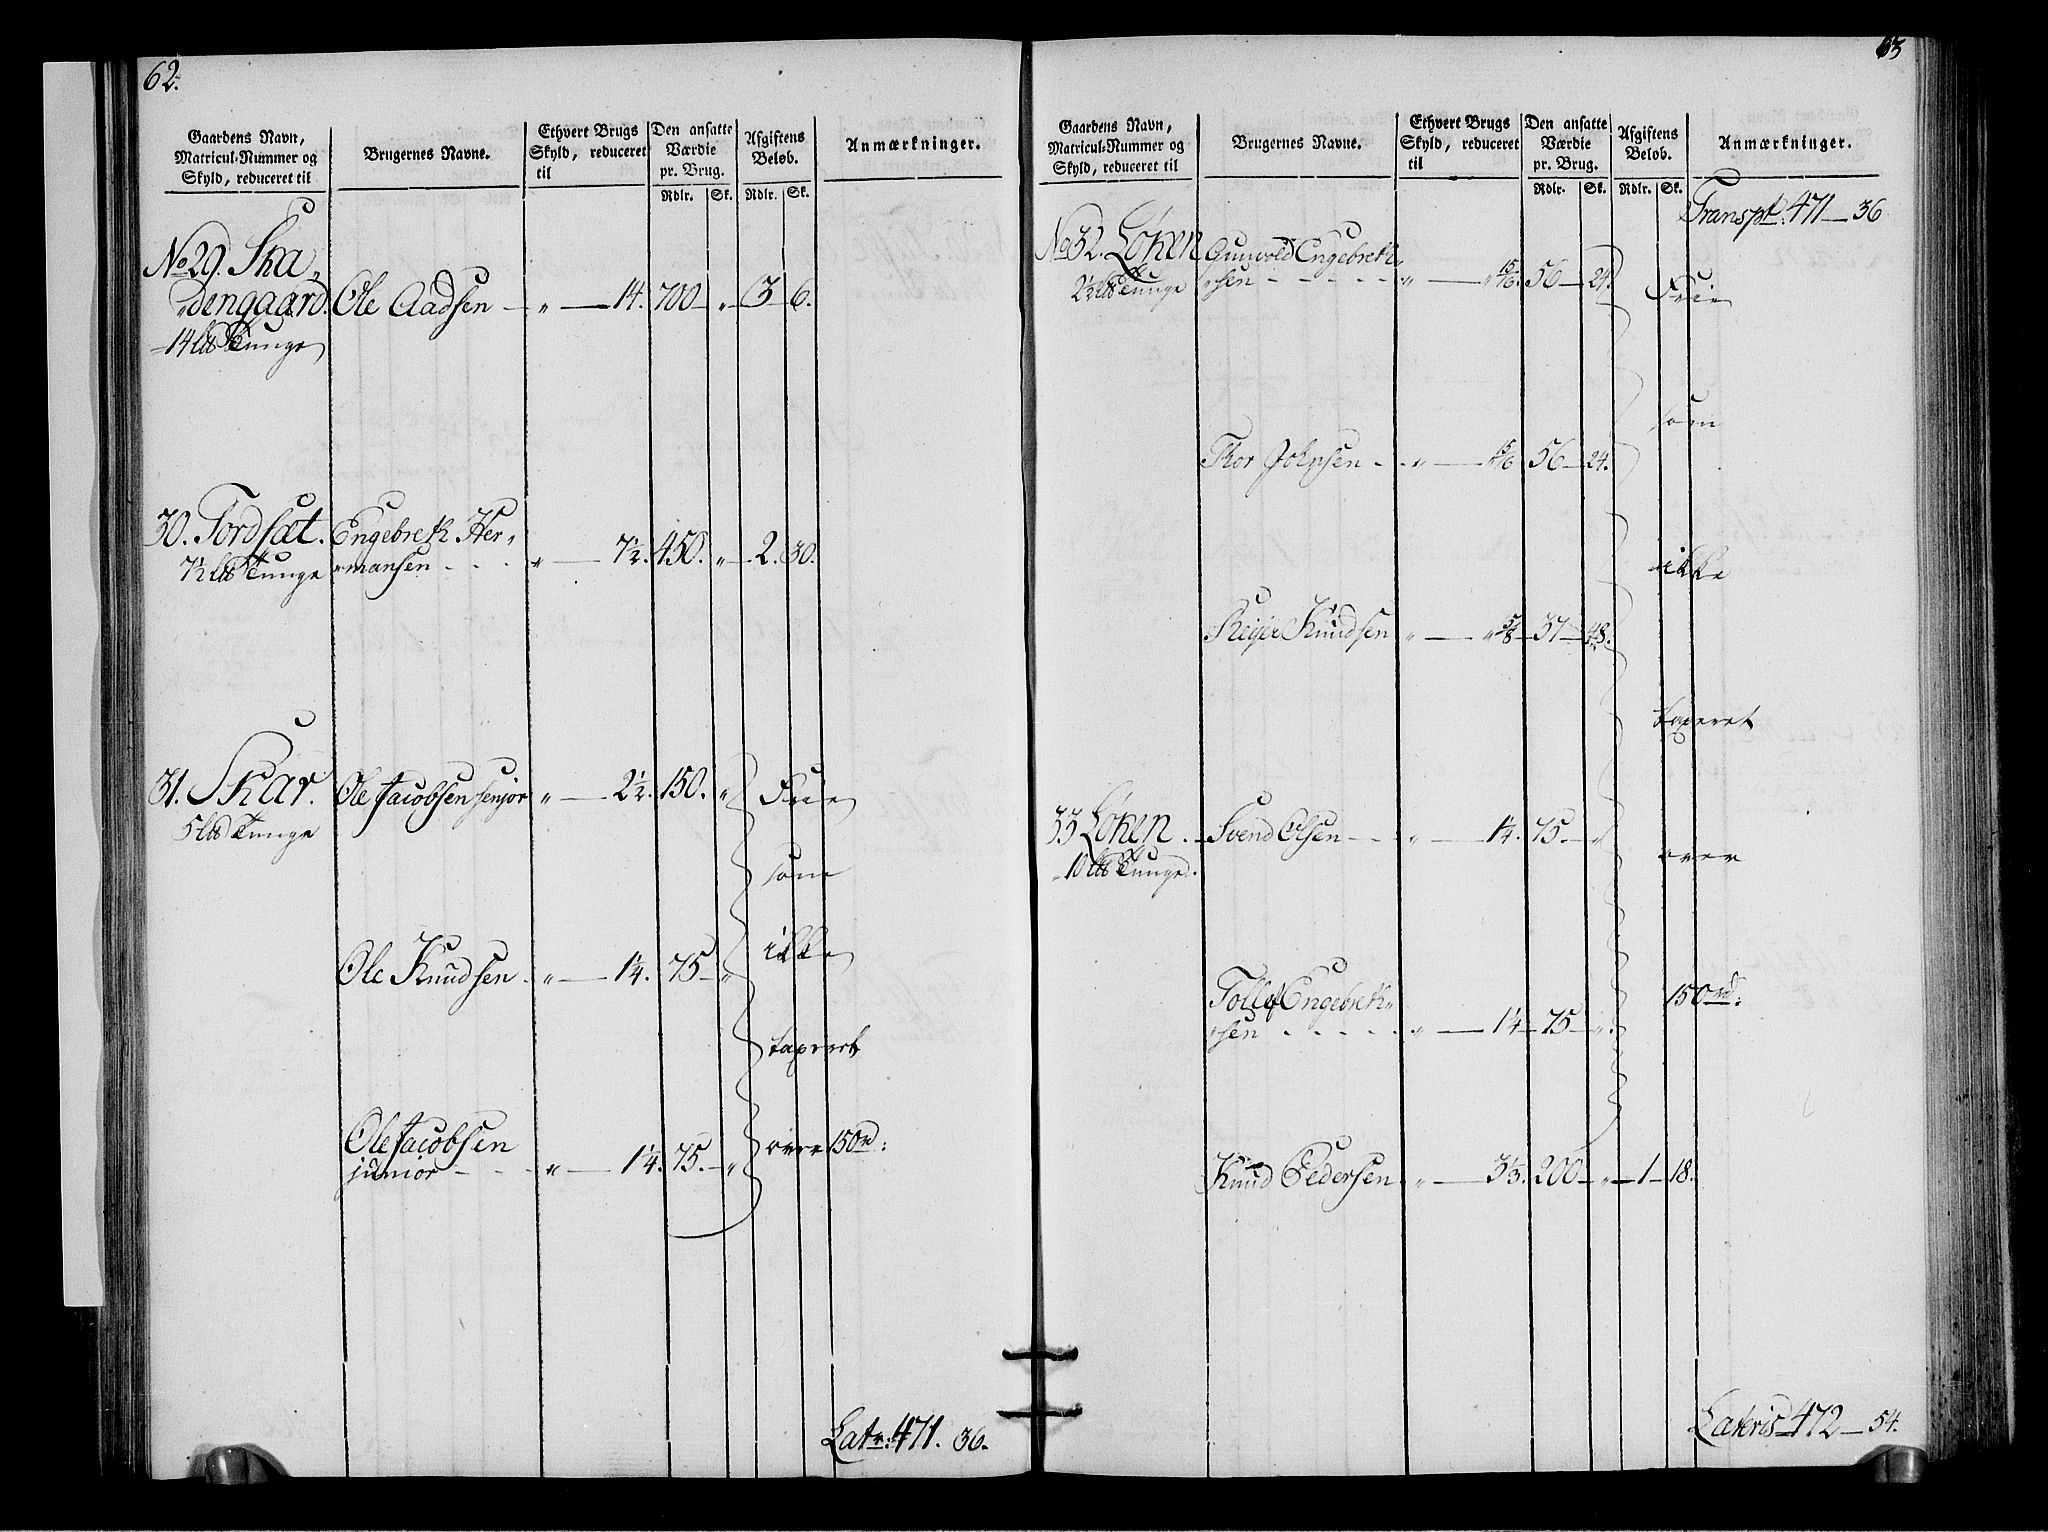 62.
Gaardens Navn, Matricul-Nummer og Skyld, reduceret til
Brugernes Navne.
Ethvert Brugs Skyld, reduceret til
Den ansatte Værdie pr. Brug.
Rdlr. Sk.
Afgiftens Beløb.
Rdlr. Sk.
Anmærkninger.
No 29. Ska„
„dengaard. Ole Aadsen - „ — 14. 700 „ 3 6.
14 lb Tunge
30. Tordsæt. Engebreth Her„
7½ lb Tunge „mansen - - - „ — 7½. 450. „ 2. 30.
31. Skar. Ole Jacobsen senjor „ — 2½. 150. „ Frie
5 lb Tunge
som
Ole Knudsen - „ — 1¼. 75 „ ikke
taxeret
Ole Jacobsen
junior - - - „ — 1¼. 75. „ over 150 rd:
Latr: 471. 36.
63
Gaardens Navn, Matricul-Nummer og Skyld, reduceret til
Brugernes Navne.
Ethvert Brugs Skyld, reduceret til
Den ansatte Værdie pr. Brug.
Rdlr. Sk.
Afgiftens Beløb.
Rdlr. Sk.
Anmærkninger.
Transpt: 471 — 36
No 32. Løken Gunvold Engebreth„
2½ lb Tunge „sen - - - - „ — „ 15/16 56 — 24. Frie
som
Thor Johnsen - „ — 15/16 56 — 24.
ikke
Reyer Knudsen „ — „ 5/8 37 — 48.
taxeret
33 Løken - Svend Olsen - - „ — 1¼. 75. „
10 lb Tunge. over
Tollef Engebreth„ 150 rd:
„sen - - - - - „ — 1¼ 75 „
Knud Pedersen „ — 3⅓. 200 „ 1 — 18.
Lateris 472 — 54.